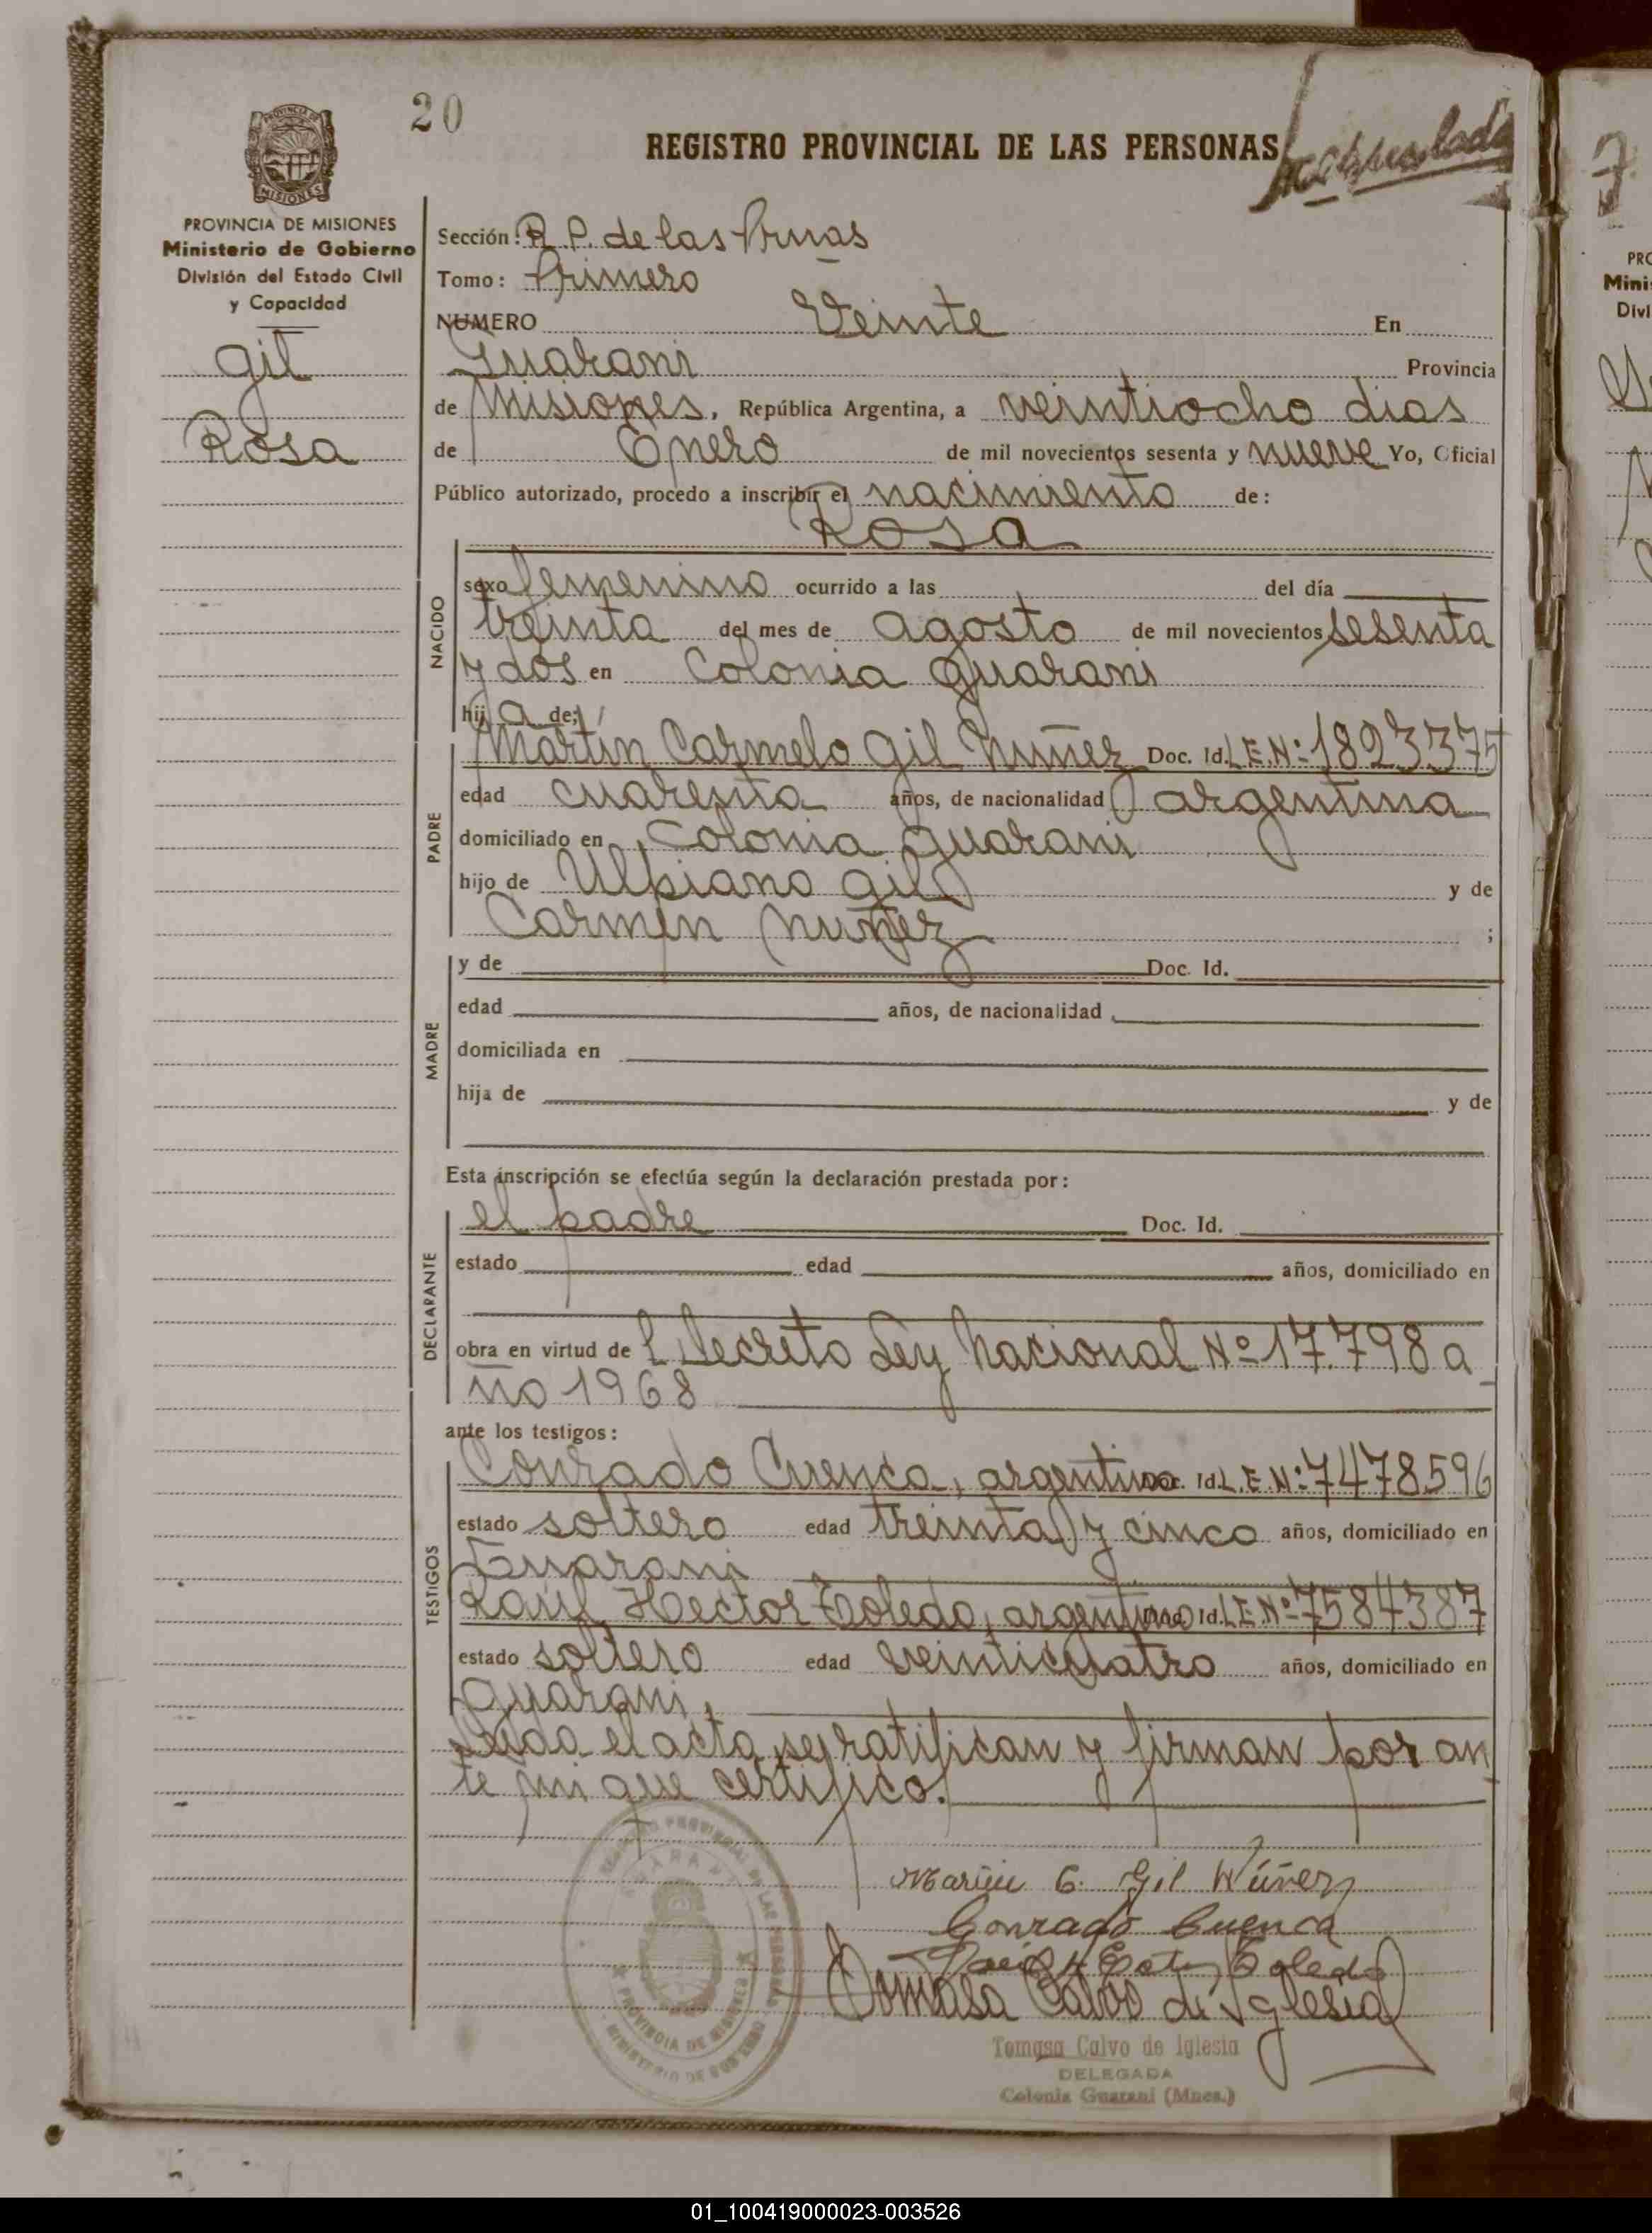 20
REGISTRO PROVINCIAL DE LAS PERSONAS
PROVINCIA DE MISIONES
Ministerio de Gobierno
División del Estado Civil
y Capacidad
Gil
Rosa
Sección: R. P. de las
Tomo: Primero
NUMERO Veinte En
Guarani Provincia
de Misiones, República Argentina, a veintiocho dias
de Enero de mil novecientos sesenta y nueve Yo, Oficial
Público autorizado, procedo a inscribir el nacimiento de:
Rosa
NACIDO
sexo femenino ocurrido a las del día
treinta del mes de agosto de mil novecientos sesenta
y dos en Colonia Guarani
hij a de;
PADRE
Martin Carmelo Gil Nuñez Doc. Id. L.E.Nº 1823375
edad cuarenta años, de nacionalidad argentina
domiciliado en Colonia Guarani
hijo de Ulpiano Gil y de
Carmen Nuñez ;
MADRE
y de Doc. Id.
edad años, de nacionalidad
domiciliada en
hija de y de
Esta inscripción se efectúa según la declaración prestada por:
DECLARANTE
el padre Doc. Id.
estado edad años, domiciliado en
obra en virtud de l Decreto Ley Nacional Nº 17.798 a
ño 1968
ante los testigos:
TESTIGOS
Conrado Cuenca, argentino Doc. Id. L.E.Nº 7478596
estado soltero edad treinta y cinco años, domiciliado en
Guarani
Raúl Hector Toledo, argentino Doc. Id. L.E.Nº 7584387
estado soltero edad veinticuatro años, domiciliado en
Guarani,
Leida el acta, se ratifican y firman por an
te mi que certifico.
Martin C. Gil Núñez
Conrado Cuenca
Toledo
Tomasa Calvo de Iglesia
Tomasa Calvo de Iglesia
DELEGADA
Colonia Guarani (Mnes.)
01_100419000023-003526